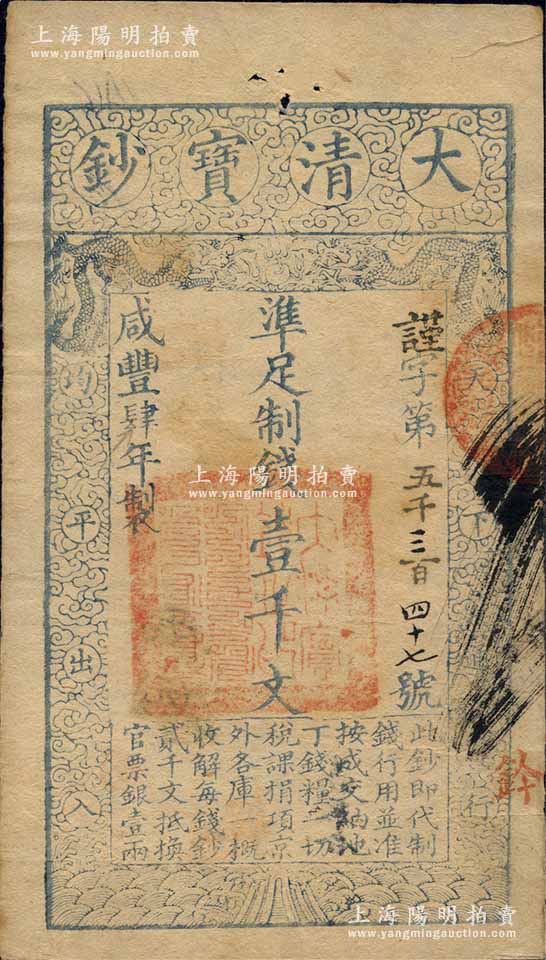 上海陽明拍賣
www.yangmingauction.com
大清寶鈔
天
行
謹字第五千三百四十七號
準足制錢壹千文
咸豐肆年製
均平出入
此鈔即代制
錢行用並准
按成交納地
丁錢糧一切
稅課捐項京
外各庫一概
收解每錢鈔
貳千文抵換
官票銀壹兩
上海陽明拍賣
www.yangmingauction.com
上海陽明拍賣
www.yangmingauction.com